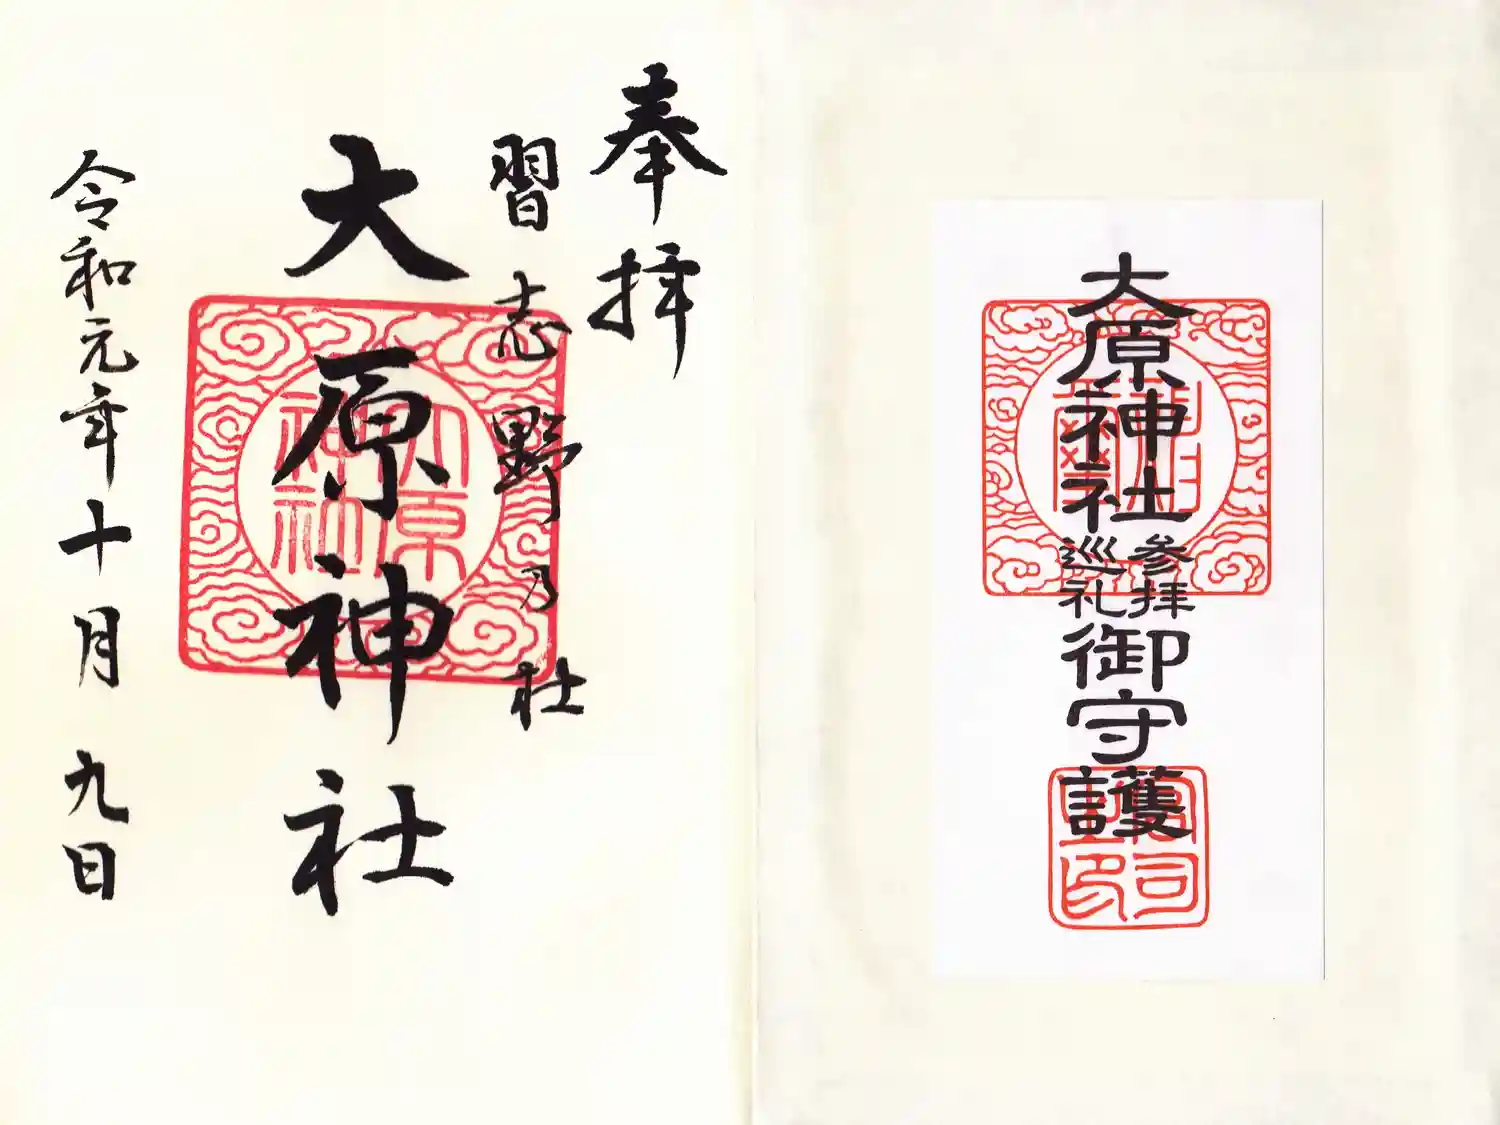 奉拝
習志野乃社
大原神社
令和元年十月九日
大原神社
参拝
巡礼
御守護
大原
神社